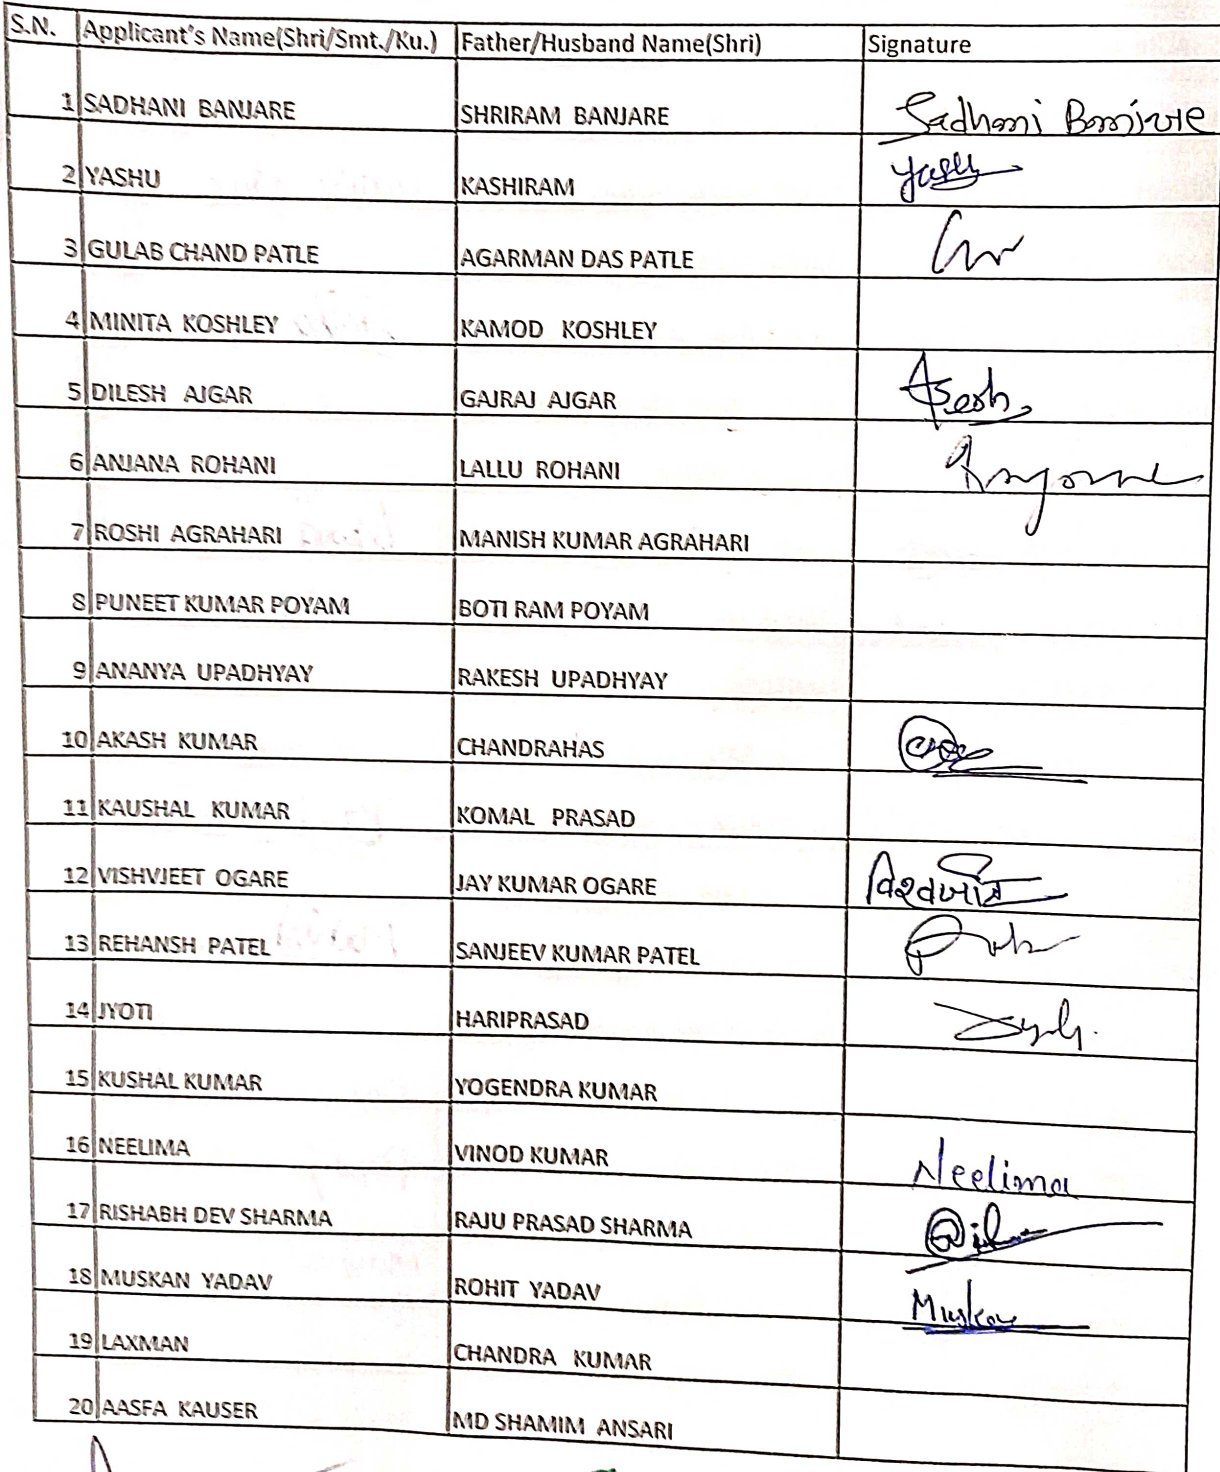 S.N. Applicant's Name(Shri/Smt./Ku.) Father/Husband Name(Shri) Signature
1 SADHANI BANJARE SHRIRAM BANJARE Sadhani Banjare
2 YASHU KASHIRAM Yashu
3 GULAB CHAND PATLE AGARMAN DAS PATLE
4 MINITA KOSHLEY KAMOD KOSHLEY
5 DILESH AJGAR GAJRAJ AJGAR
6 ANJANA ROHANI LALLU ROHANI
7 ROSHI AGRAHARI MANISH KUMAR AGRAHARI
8 PUNEET KUMAR POYAM BOTI RAM POYAM
9 ANANYA UPADHYAY RAKESH UPADHYAY
10 AKASH KUMAR CHANDRAHAS
11 KAUSHAL KUMAR KOMAL PRASAD
12 VISHVJEET OGARE JAY KUMAR OGARE विश्वजीत
13 REHANSH PATEL SANJEEV KUMAR PATEL
14 JYOTI HARIPRASAD Jyoti
15 KUSHAL KUMAR YOGENDRA KUMAR
16 NEELIMA VINOD KUMAR Neelima
17 RISHABH DEV SHARMA RAJU PRASAD SHARMA
18 MUSKAN YADAV ROHIT YADAV Muskan
19 LAXMAN CHANDRA KUMAR
20 AASFA KAUSER MD SHAMIM ANSARI